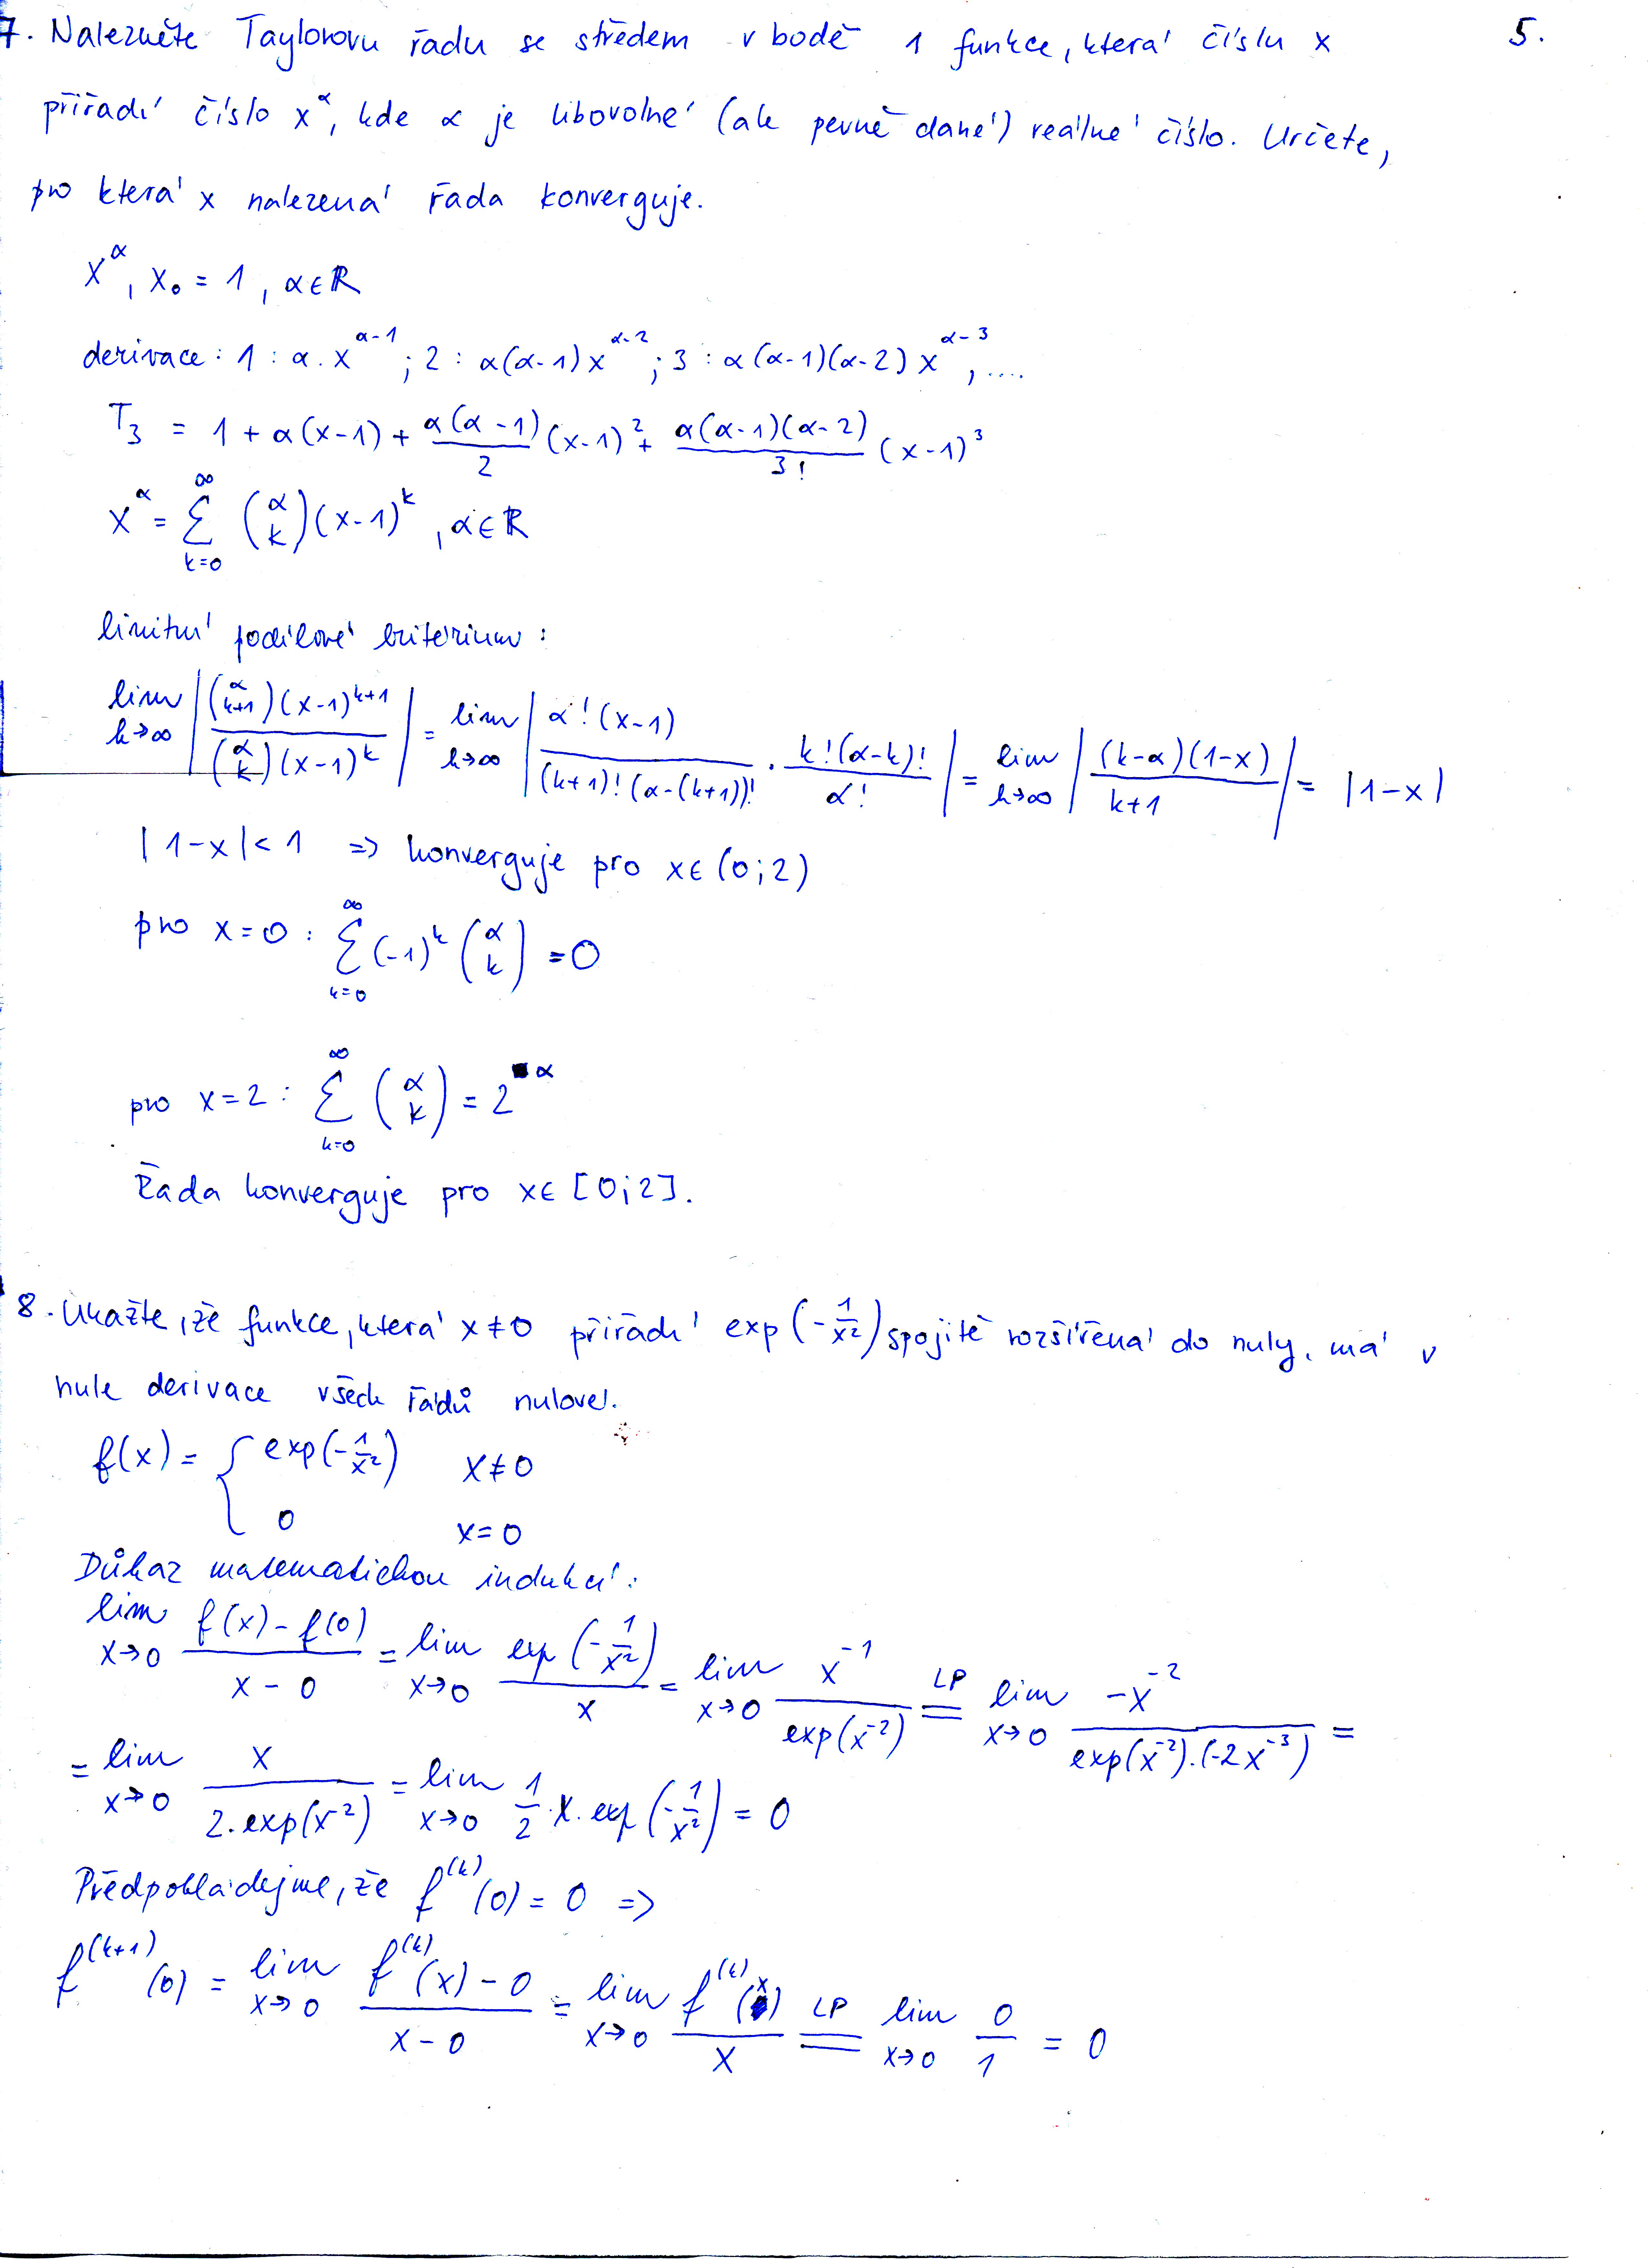 7. Nalezněte Taylorovu řadu se středem v bodě 1 funkce, která číslu x 5.
přiřadí číslo x^α, kde α je libovolné (ale pevně dané) reálné číslo. Určete,
pro která x nalezená řada konverguje.
x^α, x₀ = 1, α∈ℝ
derivace: 1: α.x^(α-1); 2: α(α-1)x^(α-2); 3: α(α-1)(α-2)x^(α-3), ....
T₃ = 1 + α(x-1) + α(α-1)/2 (x-1)² + α(α-1)(α-2)/3! (x-1)³
x^α = ∑_{k=0}^{∞} (α k)(x-1)^k, α∈ℝ
limitní podílové kritérium:
lim_{k→∞} |(α k+1)(x-1)^(k+1) / (α k)(x-1)^k| = lim_{k→∞} |α!(x-1) / (k+1)!(α-(k+1))! · k!(α-k)! / α!| = lim_{k→∞} |(k-α)(1-x) / k+1| = |1-x|
|1-x| < 1 => konverguje pro x∈(0;2)
pro x=0: ∑_{k=0}^{∞} (-1)^k (α k) = 0
pro x=2: ∑_{k=0}^{∞} (α k) = 2^α
Řada konverguje pro x∈[0;2].
8. Ukažte, že funkce, která x≠0 přiřadí exp(-1/x²) spojitě rozšířená do nuly, má v
nule derivace všech řádů nulové.
f(x) = { exp(-1/x²) x≠0
0 x=0
Důkaz matematickou indukcí:
lim_{x→0} f(x)-f(0) / x-0 = lim_{x→0} exp(-1/x²) / x = lim_{x→0} x^-1 / exp(x^-2) =LP= lim_{x→0} -x^-2 / exp(x^-2).(-2x^-3) =
= lim_{x→0} x / 2.exp(x^-2) = lim_{x→0} 1/2 . x . exp(-1/x²) = 0
Předpokládejme, že f^(k)(0) = 0 =>
f^(k+1)(0) = lim_{x→0} f^(k)(x)-0 / x-0 = lim_{x→0} f^(k)(x) / x =LP= lim_{x→0} 0/1 = 0